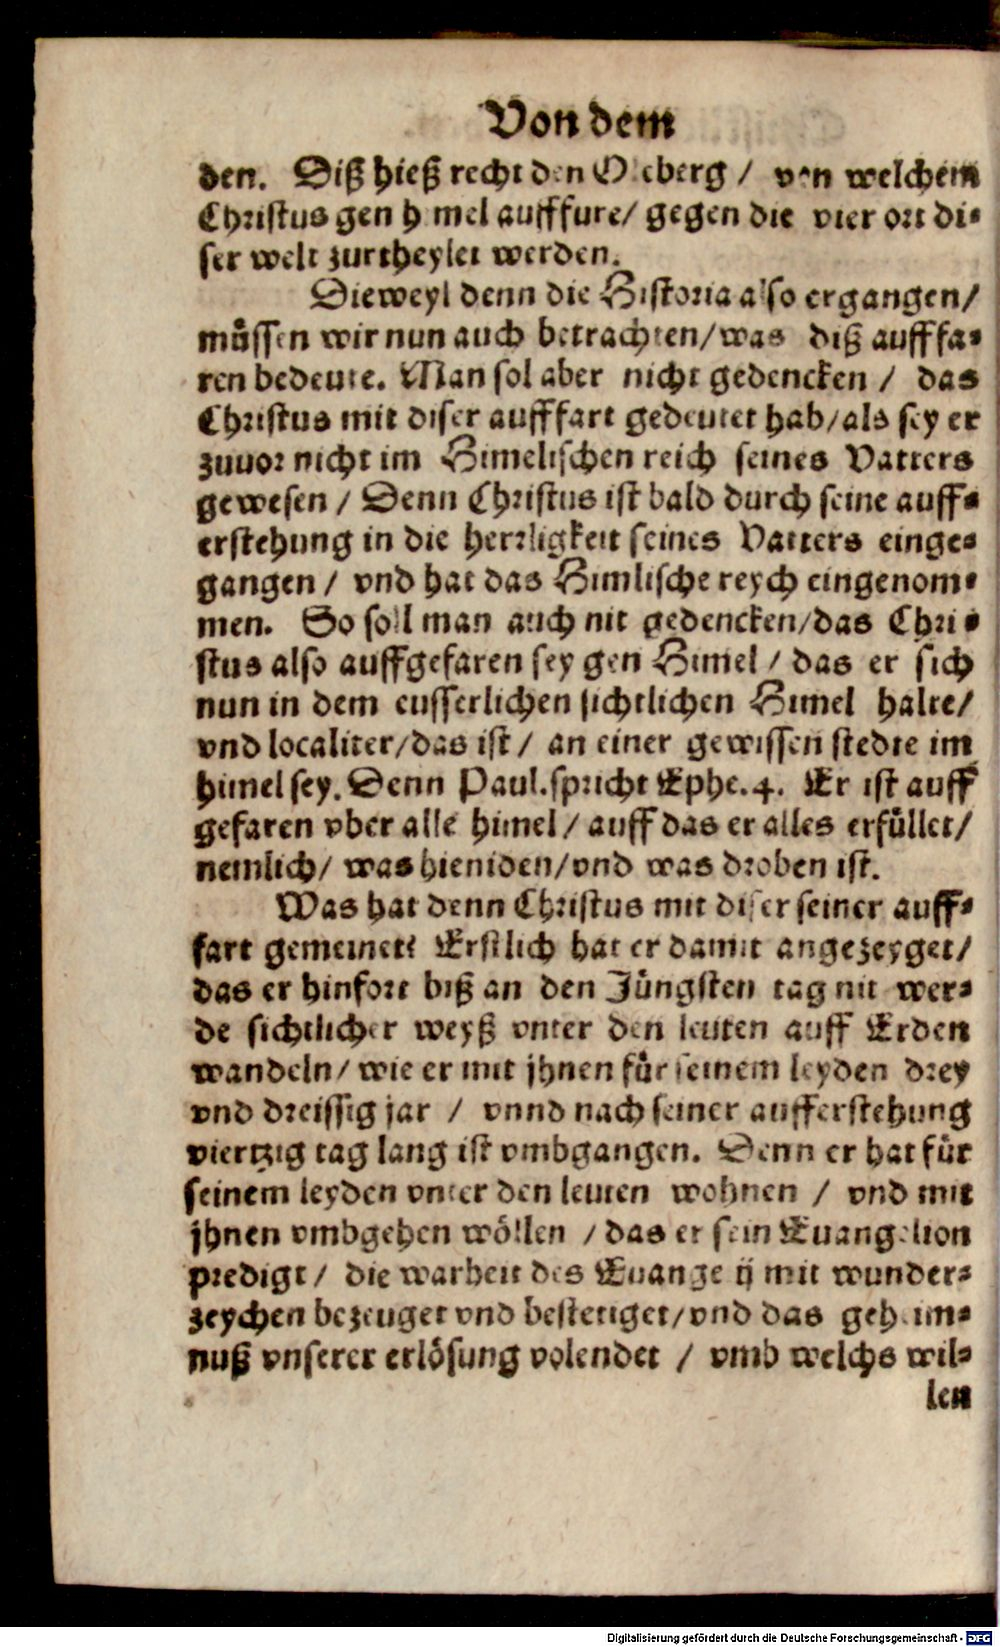 Von dem
den. Diß hieß recht den Oleberg / von welchem
Christus gen himel aufffure/ gegen die vier ort di-
ser welt zurtheylet werden.
Dieweyl denn die Historia also ergangen/
müssen wir nun auch betrachten/was diß aufffa-
ren bedeute. Man sol aber nicht gedencken / das
Christus mit diser aufffart gedeutet hab/als sey er
zuuor nicht im Himelischen reich seines Vatters
gewesen / Denn Christus ist bald durch seine auff-
erstehung in die herrligkeit seines Vatters einge-
gangen / vnd hat das Himlische reych eingenom-
men. So soll man auch nit gedencken/das Chri-
stus also auffgefaren sey gen Himel / das er sich
nun in dem eusserlichen sichtlichen Himel halte/
vnd localiter/das ist / an einer gewissen stedte im
himel sey. Denn Paul.spricht Ephe.4. Er ist auff
gefaren vber alle himel / auff das er alles erfüllet/
nemlich/ was hieniden/vnd was droben ist.
Was hat denn Christus mit diser seiner auff-
fart gemeinet? Erstlich hat er damit angezeyget/
das er hinfort biß an den Jüngsten tag nit wer-
de sichtlicher weyß vnter den leuten auff Erden
wandeln/ wie er mit jhnen für seinem leyden drey
vnd dreissig jar / vnnd nach seiner aufferstehung
viertzig tag lang ist vmbgangen. Denn er hat für
seinem leyden vnter den leuten wohnen / vnd mit
jhnen vmbgehen wöllen / das er sein Euangelion
predigt / die warheit des Euangelij mit wunder-
zeychen bezeuget vnd bestetiget/vnd das geheim-
nuß vnserer erlösung volendet / vmb welchs wil-
len
Digitalisierung gefördert durch die Deutsche Forschungsgemeinschaft - DFG